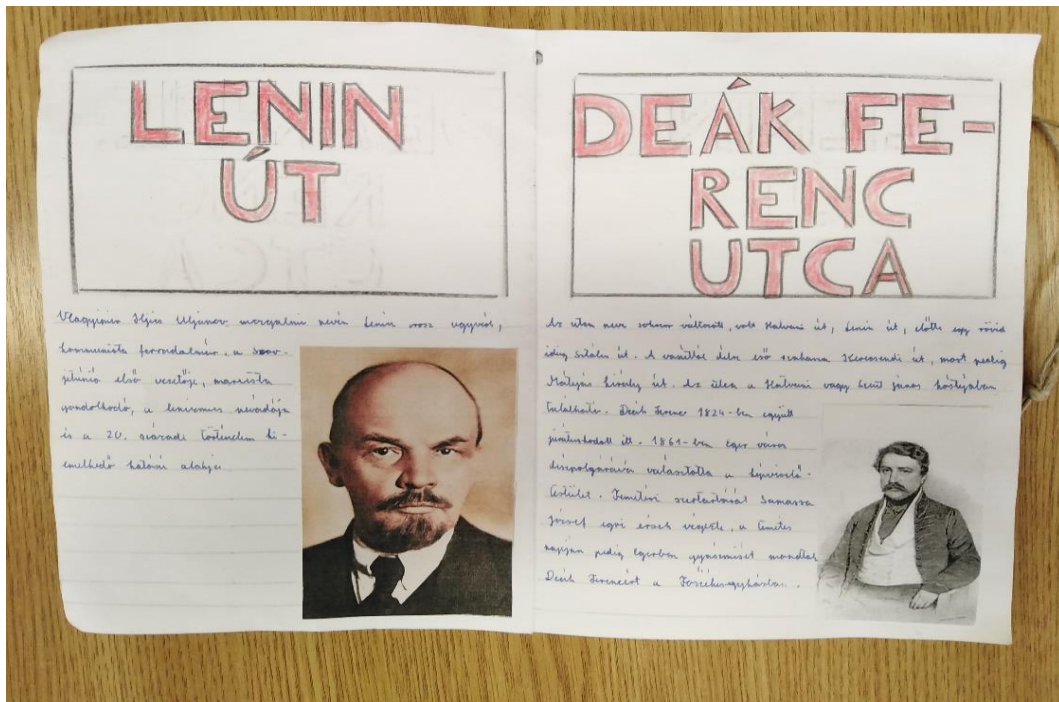 LENIN
ÚT
Vlagyimir Iljics Uljanov mozgalmi nevén Lenin orosz ugyvéd,
kommunista forradalmár, a Szov-
jetúnió első vezetője, marxista
gondolkodó, a leninizmus névadója
és a 20. századi történelem ki-
emelkedő hatású alakja
DEÁK FE-
RENC
UTCA
Az utca neve sokszor változott, volt Hatvani út, Lenin út, előtte egy rövid
ideig Sztálin út. A vasúttól délre eső szakasza Kerecsendi út, most pedig
Mátyás király út. Az utca a Hatvani vagy Szent János hóstyában
található. Deák Ferenc 1824-ben együtt
itt. 1861-ben Eger város
díszpolgárává választotta a képviselő-
testület. Temetési szertartását Samassa
József egri érsek végezte, a temetés
napján pedig Egerben gyászmisét mondtak
Deák Ferencért a Főszékesegyházban.